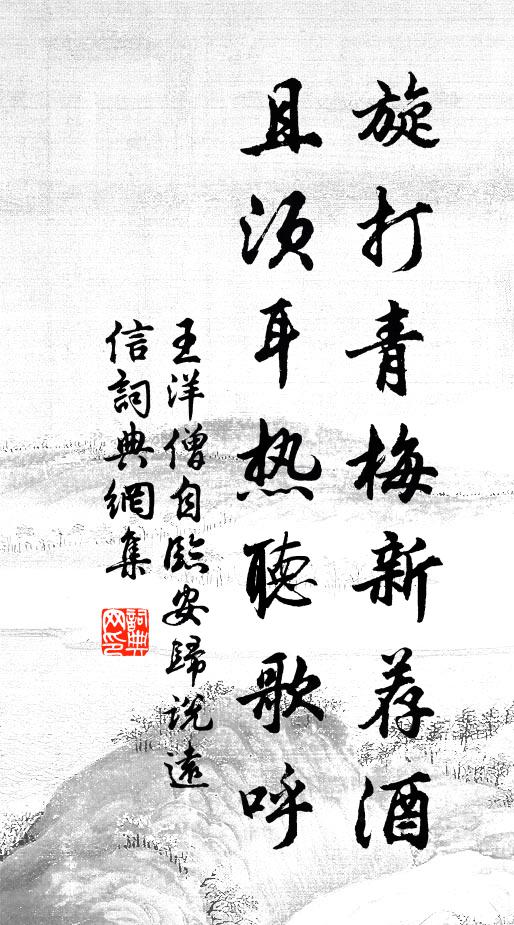 旋打青梅新荐酒
且须耳热聽歌呼
王洋僧自臨安歸説遠
信詞典網集
詞典
网印